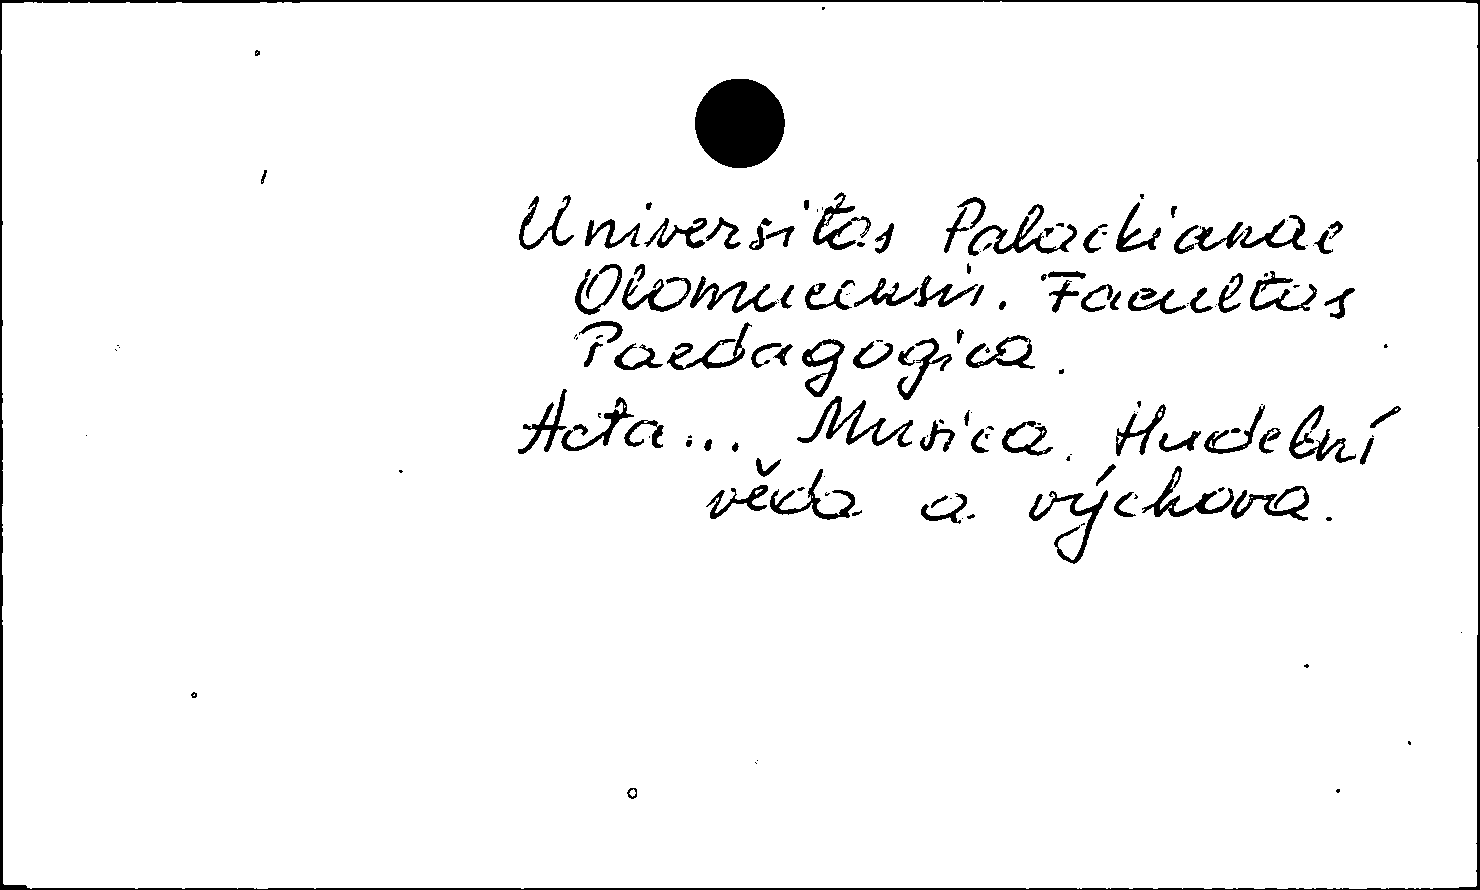 Universitas Palackianae
Olomucensis. Facultas
Paedagogica.
Acta... Musica. Hudební
věda a výchova.